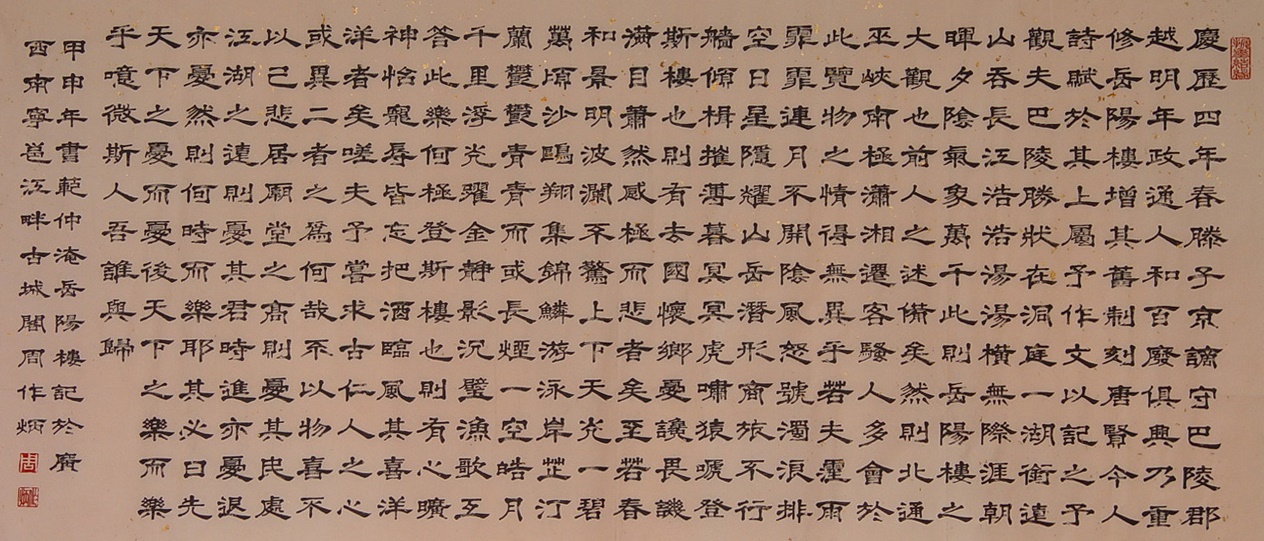 慶歷四年春滕子京謫守巴陵郡
越明年政通人和百廢俱興乃重
修岳陽樓增其舊制刻唐賢今人
詩賦於其上屬予作文以記之予
觀夫巴陵勝狀在洞庭一湖銜遠
山吞長江浩浩湯湯橫無際涯朝
暉夕陰氣象萬千此則岳陽樓之
大觀也前人之述備矣然則北通
巫峽南極瀟湘遷客騷人多會於
此覽物之情得無異乎若夫霪雨
霏霏連月不開陰風怒號濁浪排
空日星隱耀山岳潛形商旅不行
檣傾楫摧薄暮冥冥虎嘯猿嗁登
斯樓也則有去國懷鄉憂讒畏譏
滿目蕭然感極而悲者矣至若春
和景明波瀾不驚上下天光一碧
萬頃沙鷗翔集錦鱗游泳岸芷汀
蘭鬱鬱青青而或長煙一空皓月
千里浮光耀金靜影沉璧漁歌互
答此樂何極登斯樓也則有心曠
神怡寵辱皆忘把酒臨風其喜洋
洋者矣嗟夫予嘗求古仁人之心
或異二者之為何哉不以物喜不
以己悲居廟堂之高則憂其民處
江湖之遠則憂其君時進亦憂退
亦憂然則何時而樂耶其必曰先
天下之憂而憂後天下之樂而樂
乎噫微斯人吾誰與歸
甲申年書範仲淹岳陽樓記於廣
西南寧邕江畔古城閣周作炳